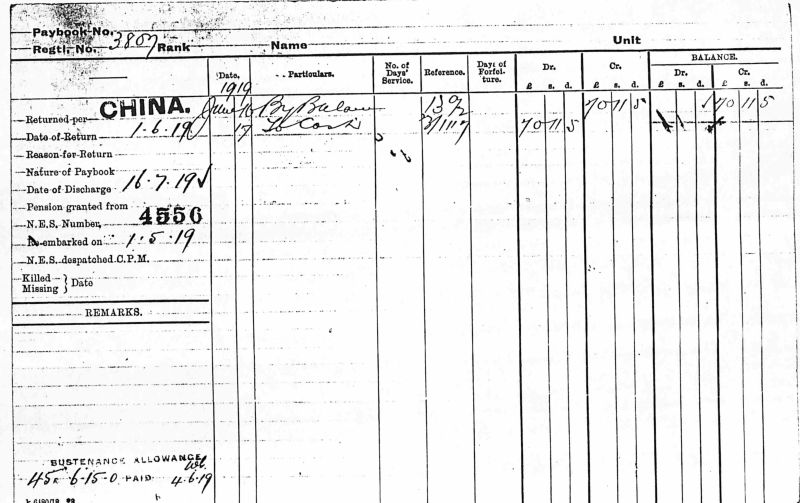 Paybook No.
Regtl. No. 3807 Rank Name Unit
Date, Particulars. No. of Days' Service. Reference. Days of Forfeiture. Dr. Cr. BALANCE.
£ s. d. £ s. d. Dr. Cr.
£ s. d. £ s. d.
1919
Returned per CHINA. June 16 By Balance 70 11 5 70 11 5
Date of Return 1.6.19 17 To Cash 70 11 5
Reason for Return
Nature of Paybook
Date of Discharge 16.7.19
Pension granted from
N.E.S. Number, 4556
Re-embarked on 1.5.19
N.E.S. despatched C.P.M.
Killed
Missing } Date
REMARKS.
SUSTENANCE ALLOWANCE
6-15-0 PAID 4.6.19